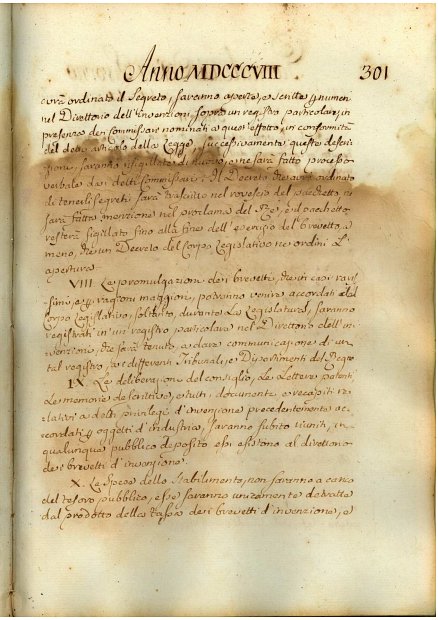 Anno MDCCCVIII 301
avrà ordinato il Segreto, saranno aperte, e scritte
nel Direttorio dell'invenzioni, sopra un registro particolare, in
presenza dei Commissari nominati a quest'effetto, in conformità
del detto articolo della Legge, successivamente queste descri-
zioni saranno sigillate di nuovo, e ne sarà fatto processo
verbale dai detti Commissari: Il Decreto che avrà ordinato
di tenerli segreti sarà trascritto nel rovescio del pacchetto, ne
sarà fatta menzione nel proclama del Re, ed il pacchetto
resterà sigillato fino alla fine dell'esercizio del brevetto, a
meno, che un Decreto del Corpo Legislativo ne ordini l'
apertura.
VIII. Le promulgazione dei brevetti, che in casi raris-
simi, e ragioni maggiori, potranno venire accordati dal
Corpo Legislativo, soltanto, durante la Legislatura, saranno
registrati in un registro particolare nel Direttorio dell'in-
venzione, che sarà tenuto, a dare comunicazione di un
tal registro, ai differenti Tribunali, e Dipartimenti del Regno
IX. Le deliberazioni del consiglio, Le Lettere patenti
Le memorie descrittive, e tutti i documenti, e recapiti re-
lativi a delli privilegi d'invenzione precedentemente ac-
cordati oggetti d'industria, saranno subito riuniti, in
qualunque pubblico deposito essi esistono al direttorio
dei brevetti d'invenzione.
X. Le spese dello stabilimento, non saranno a carico
del tesoro pubblico, esse saranno unicamente detratte
dal prodotto della tassa dei brevetti d'invenzione, e